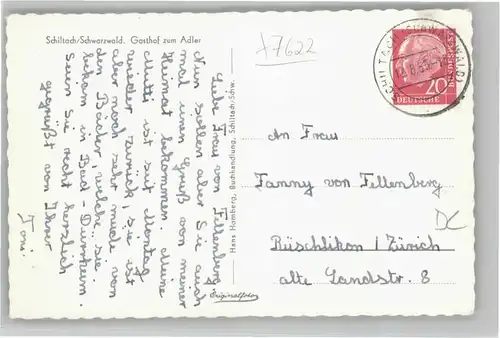 Schiltach/Schwarzwald. Gasthof zum Adler
Liebe Frau von Fellenberg,
Nun sollen aber Sie auch
mal einen Gruß von meiner
Heimat bekommen. Meine
Mutti ist seit Montag
wieder zurück, sie ist
aber noch sehr müde von
den Bäder, welche sie
bekam in Bad-Dürrheim.
Seien Sie recht herzlich
gegrüßt von Ihrer
Toni.
Hans Homberg, Buchhandlung, Schiltach/Schw.
Originalfoto
+7622
SCHILTACH (SCHWARZWALD)
DEUTSCHE
BUNDESPOST
20
An Frau
Fanny von Fellenberg
Rüschlikon / Zürich
alte Landstr. 8